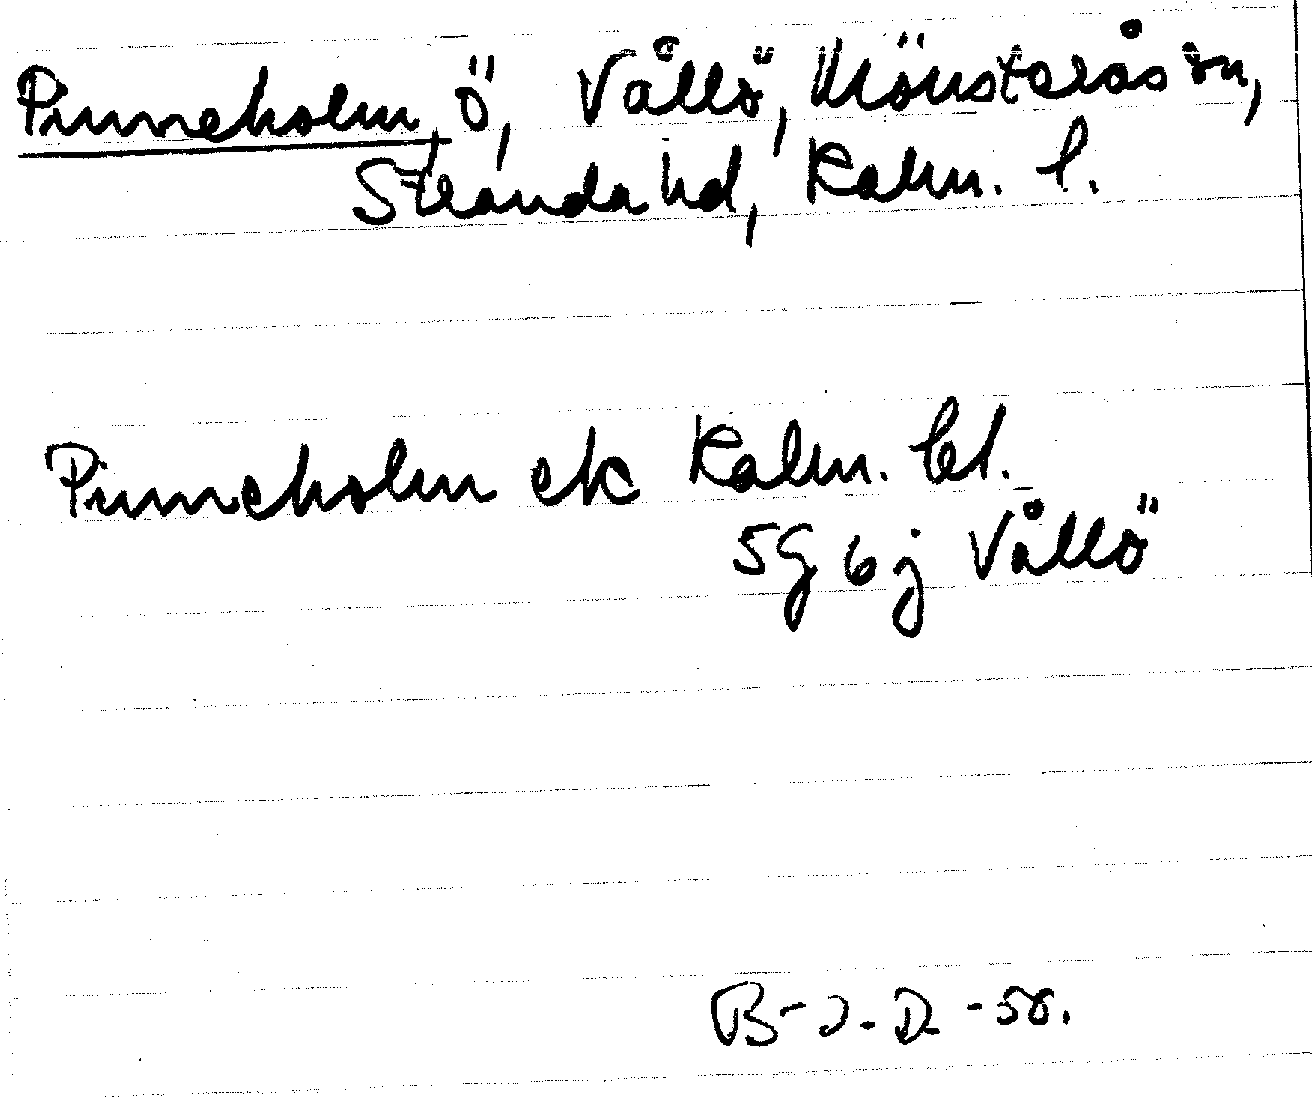 Pinneholm, ö, Vållö, Mönsterås sn,
Stranda hd, Kalm. l.
Pinneholm ek Kalm. bl.
5G 6j Vållö
B-J. D. -58.